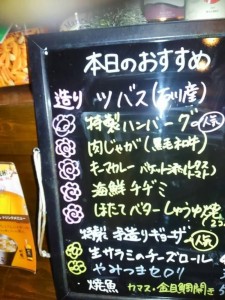 本日のおすすめ
造り ツバス(石川産)
特製ハンバーグ 人気
肉じゃが(黒毛和牛)
キーマカレー バゲット添え レタス トマト
海鮮チヂミ
ほたてバターしょうゆ焼
特製 手造りギョーザ 人気
生サラミのチーズロール
やみつきセロリ
焼魚 カマス・金目鯛開き